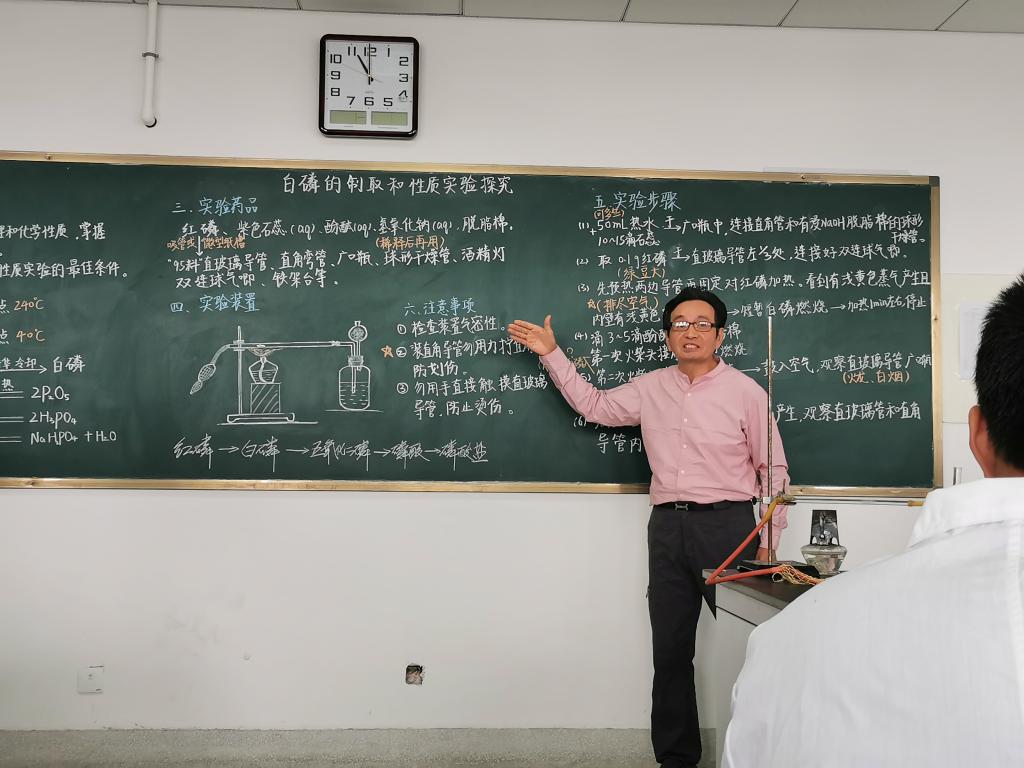 12
11
1
10
2
9
3
8
4
7
6
5
白磷的制取和性质实验探究
和化学性质,掌握
性质实验的最佳条件。
点 240℃
点 40℃
冷却 白磷
热
2P₂O₅
2H₃PO₄
NaHPO₄ + H₂O
三. 实验药品
红磷、紫色石蕊(aq) 酚酞(aq). 氢氧化钠(aq), 脱脂棉.
(稀释后再用)
直玻璃导管、直角弯管、广口瓶、球形干燥管、酒精灯
双连球气唧、铁架台等。
四. 实验装置
红磷 → 白磷 → 五氧化二磷 → 磷酸 → 磷酸盐
六. 注意事项
① 检查装置气密性。
② 装直角导管勿用力
防划伤。
③ 勿用手直接触摸直玻璃
导管,防止烫伤。
五. 实验步骤
(1). 50mL热水 广口瓶中, 连接直角管和有浸NaOH脱脂棉的球形
10~15滴石蕊
干燥管。
(2) 取 0.1g红磷 直玻璃导管左 处, 连接好双连球气唧.
(绿豆大)
(3) 先预热 两边导管再固定对红磷加热. 看到有浅黄色蒸气产生且
(排尽空气)
内壁有浅黄色 白磷燃烧 → 加热1min左右停止
(4) 滴 3~5滴酚酞 棉
第一次火柴头 燃烧
第二次 → 鼓入空气, 观察直玻璃导管广口瓶
(火花, 白烟)
(6) 产生, 观察直玻璃管和直角
导管内